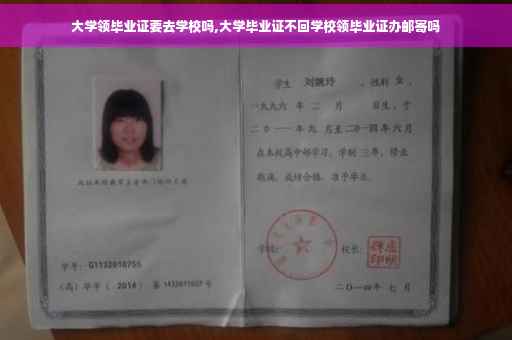 大学领毕业证要去学校吗,大学毕业证不回学校领毕业证办邮寄吗
学生 刘婉玲 ，性别 女 ，
一九九六 年 二 月 日生，于
二〇一一 年 九 月至 二〇一四 年 六 月
在本校高中部学习，学制 三 年，修业
期满，成绩合格，准予毕业。
学校: 校长:
学号: G1132010755
(高) 毕字 ( 2014 ) 第 1432011027 号
二〇一四年 七 月